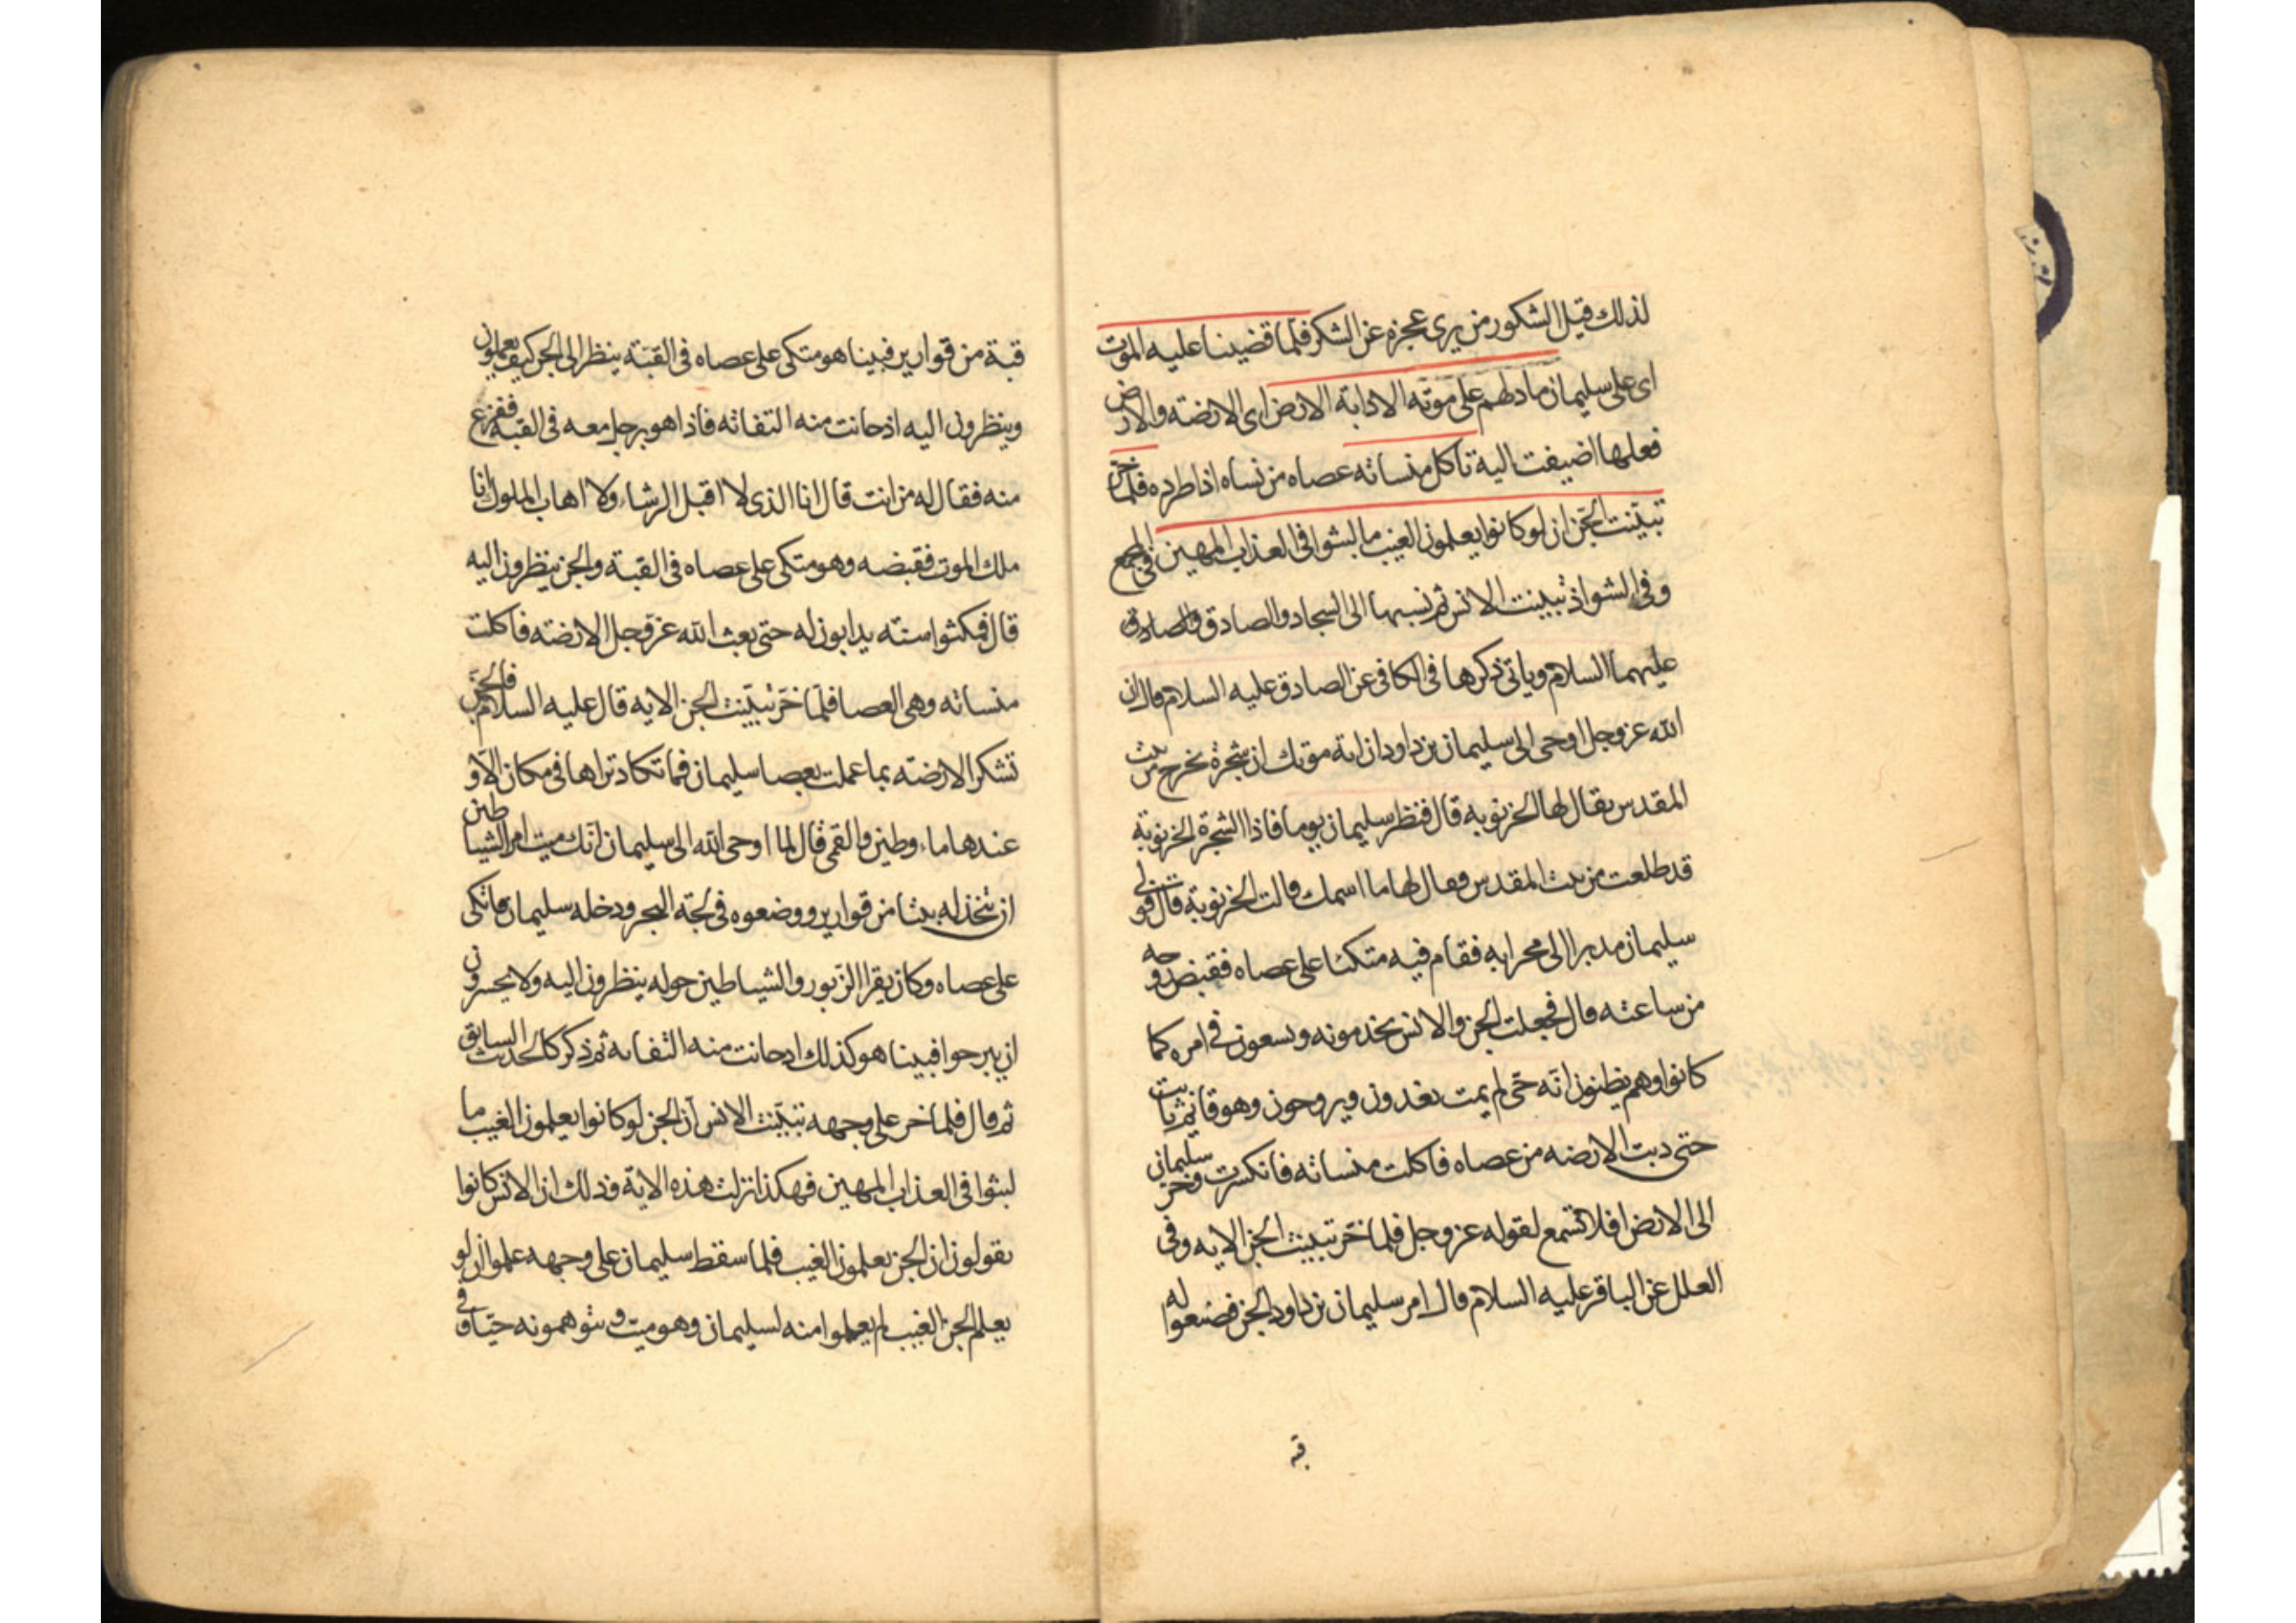 لذلك قيل الشكور من يرى عجزه عن الشكر فلما قضينا عليه الموت
اى على سليمان ما دلهم على موته الا دابة الارض اى الارضة والارض
فعلها اضيفت اليه تاكل منساته عصاه من نساه اذا طرده فلما خر
تبيّنت الجن ان لو كانوا يعلمون الغيب ما لبثوا فى العذاب المهين فى المجمع
وفى الشواذ تبينت الانس ثم نسبها الى السجاد والصادق والصادق
عليهما السلام وياتى ذكرها فى الكافى عن الصادق عليه السلام قال ان
الله عز وجل اوحى الى سليمان بن داود ان اية موتك ان شجرة تخرج من بيت
المقدس يقال لها الخرنوبه قال فنظر سليمان يوما فاذا الشجرة الخرنوبة
قد طلعت من بيت المقدس فقال لها ما اسمك قالت الخرنوبة قال فولى
سليمان مدبرا الى محرابه فقام فيه متكئا على عصاه فقبض روحه
من ساعته قال فجعلت الجن والانس يخدمونه ويسعون فى امره كما
كانوا وهم يظنون انّه حىّ لم يمت يغدون ويروحون وهو قائم ثابت
حتى دبت الارضه من عصاه فاكلت منساته فانكسرت وخر سليمان
الى الارض افلا تسمع لقوله عز وجل فلما خرّ تبينت الجن الايه وفى
العلل عن الباقر عليه السلام قال امر سليمان بن داود الجن فصنعوا له
قبة
قبة من قوارير فبينا هو متكى على عصاه فى القبّة ينظر الى الجن كيف يعملون
وينظرون اليه اذ حانت منه التفاته فاذا هو برجل معه فى القبة ففزع
منه فقال له من انت قال انا الذى لا اقبل الرشاء ولا اهاب الملوك انا
ملك الموت فقبضه وهو متكى على عصاه فى القبة والجن ينظرون اليه
قال فمكثوا سنته يدابون له حتى بعث الله عزّ وجل الارضته فاكلت
منساته وهى العصا فلمّا خرّ تبيّنت الجن الايه قال عليه السلام فالجنّ
تشكر الارضته بما عملت بعصا سليمان فما تكاد تراها فى مكان الّا و
عندها ماء وطين والقمى قال لما اوحى الله الى سليمان انّك ميت امر الشياطين
ان تتخذ له بيتا من قوارير ووضعوه فى لجّة البحر ودخله سليمان فاتكى
على عصاه وكان يقرا الزّبور والشياطين حوله ينظرون اليه ولا يجسرون
ان يبرحوا فبينا هو كذلك اذ حانت منه التفاته ثم ذكر كالحديث السابق
ثم قال فلما خر على وجهه تبيّنت الانس ان الجن لو كانوا يعلمون الغيب ما
لبثوا فى العذاب المهين فهكذا نزلت هذه الاية وذلك ان الانس كانوا
يقولون ان الجن يعلمون الغيب فلما سقط سليمان على وجهه علموا ان لو
يعلم الجن الغيب لم يعملوا سنه لسليمان وهو ميت ويتوهمونه حيّا و فى